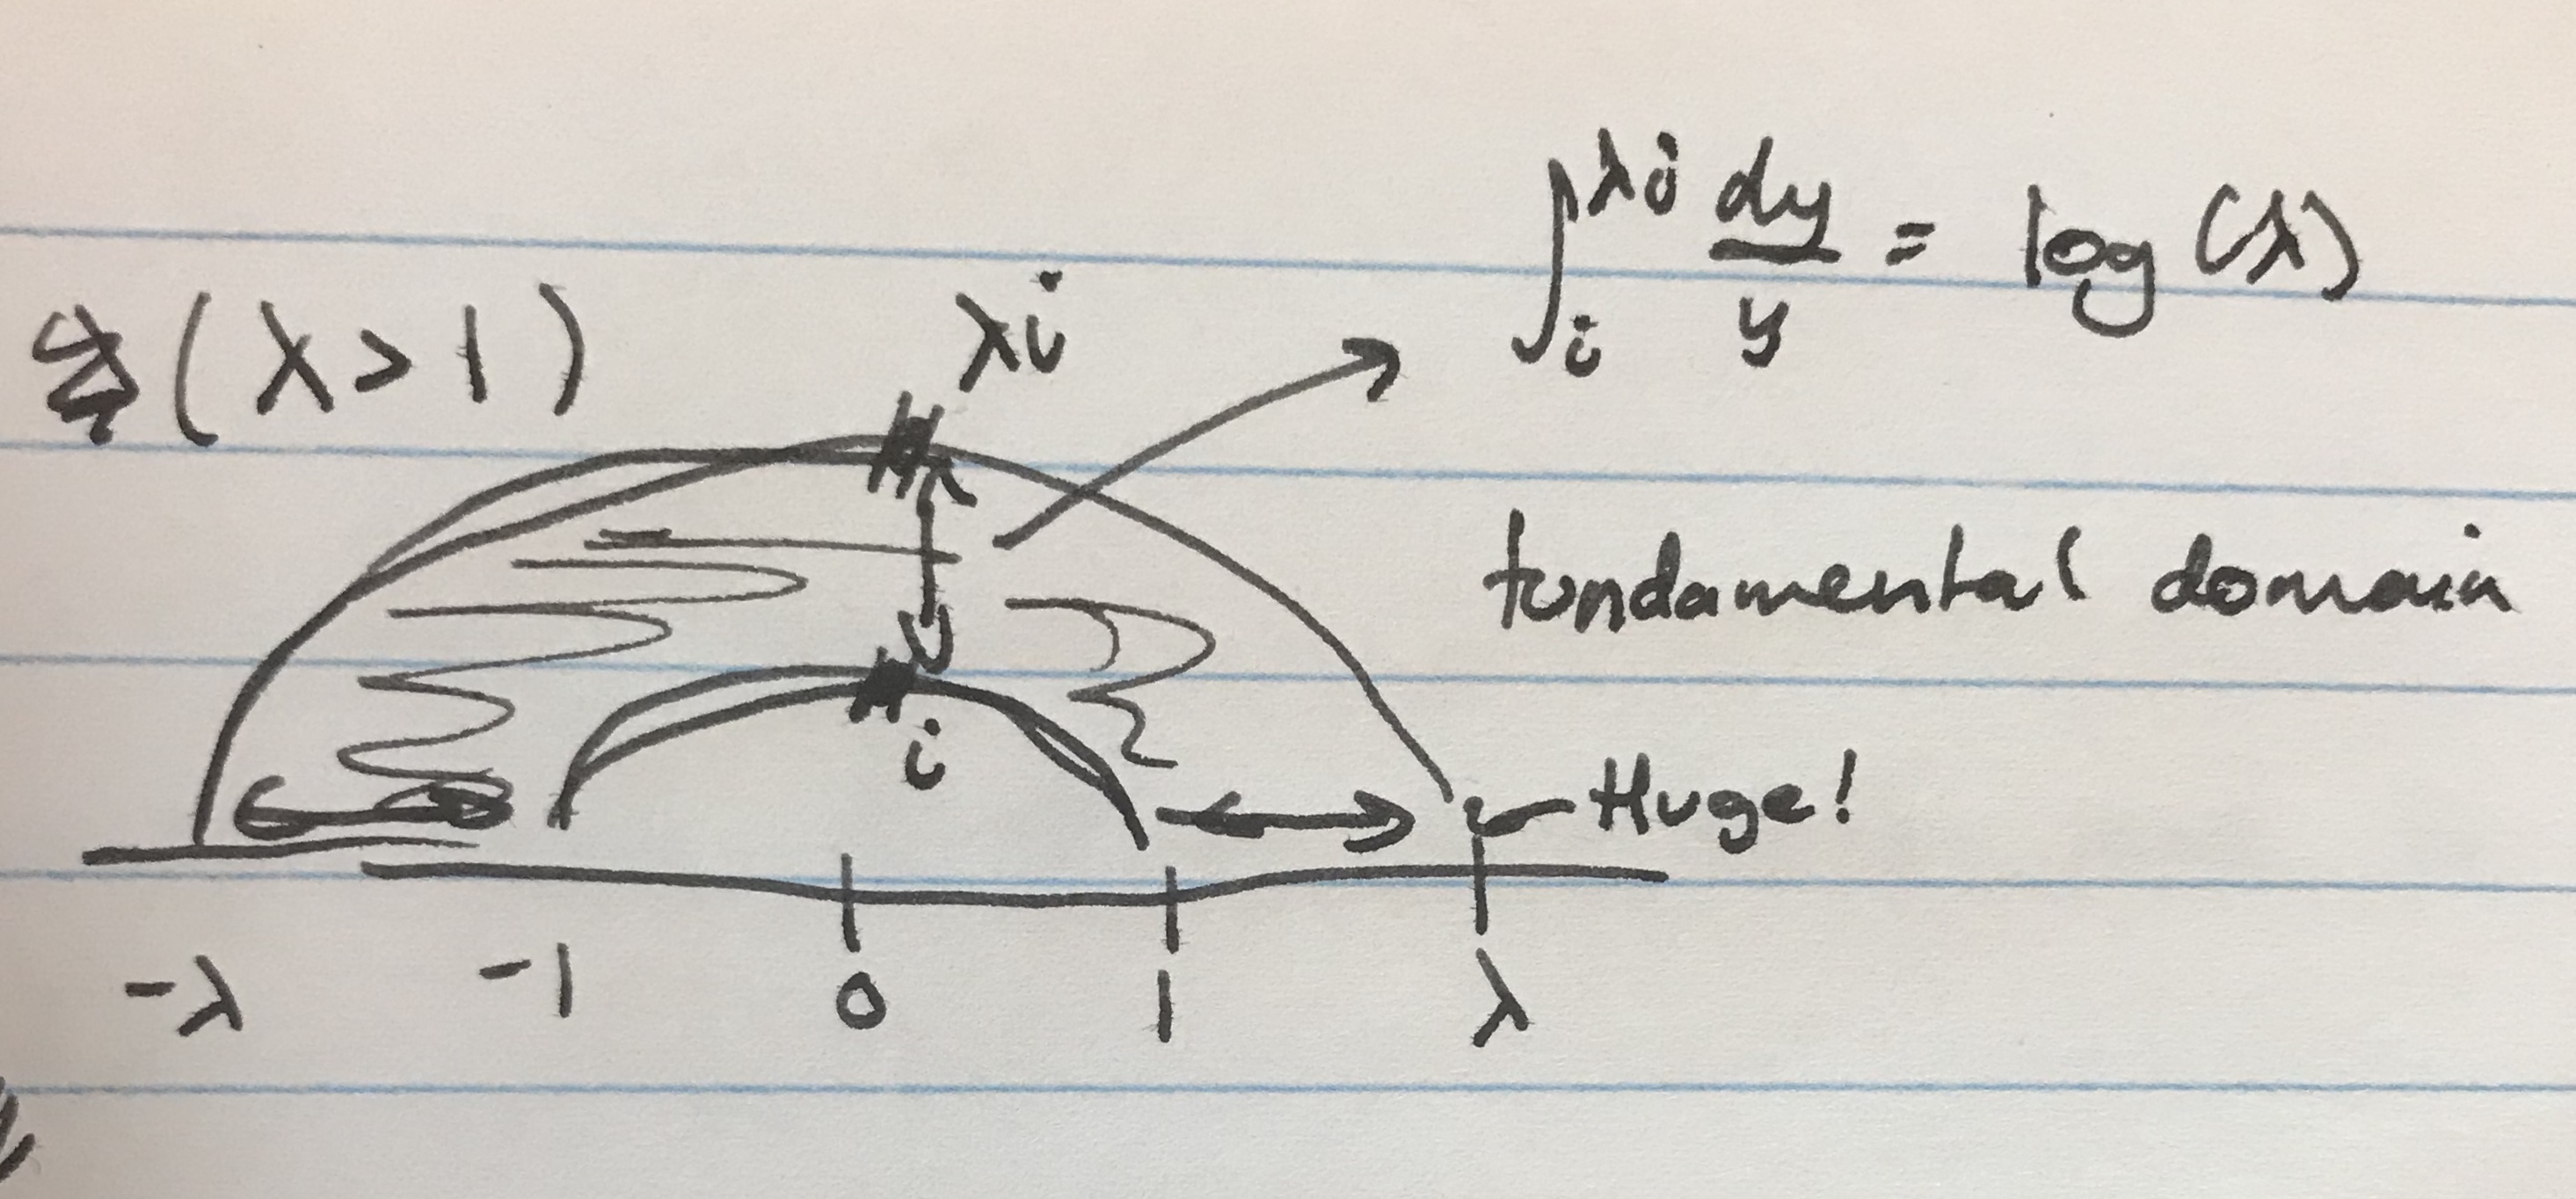 ∫_i^{λi} dy/y = log(λ)
(λ>1)
λi
fundamental domain
i
Huge!
-λ -1 0 1 λ